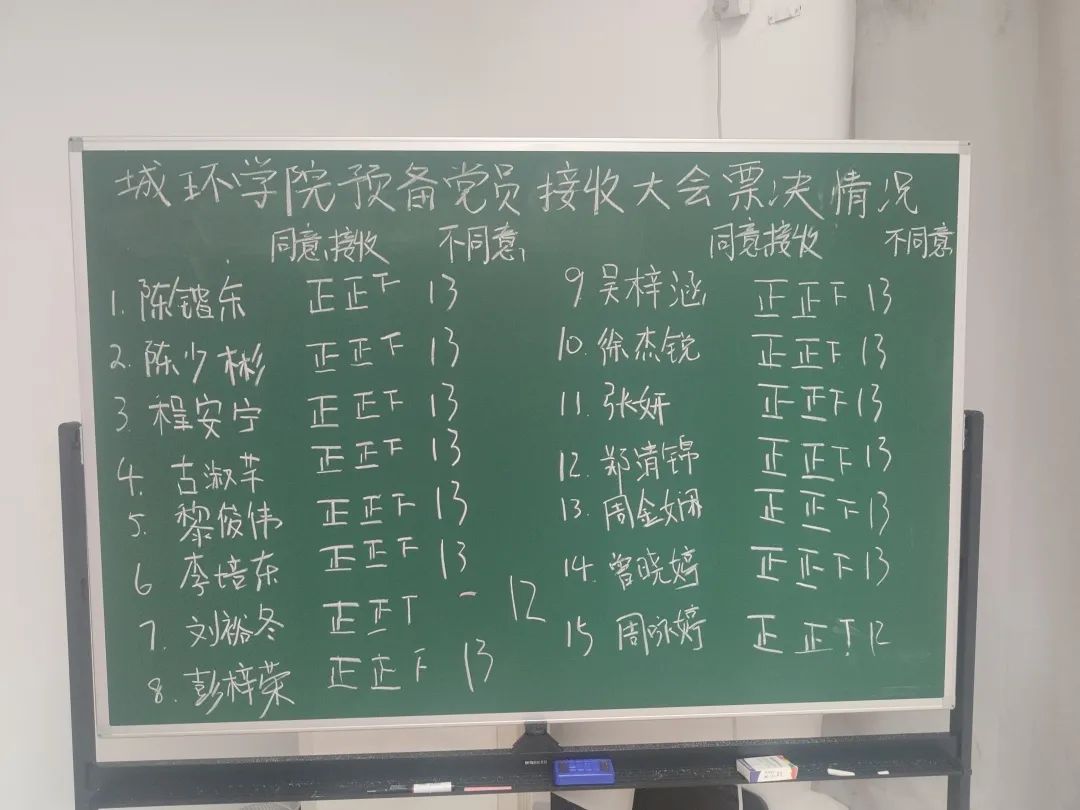 城环学院预备党员接收大会票决情况
同意接收 不同意 同意接收 不同意
1. 陈锴乐 正正下 13
2. 陈少彬 正正下 13
3. 程安宁 正正下 13
4. 古淑芊 正正下 13
5. 黎俊伟 正正下 13
6 李培东 正正下 13
7. 刘裕冬 正正丅 一 12
8. 彭梓荣 正正下 13
9 吴梓涵 正正下 13
10. 徐杰锐 正正下 13
11. 张妍 正正下 13
12. 郑清锦 正正下 13
13. 周金娴 正正下 13
14. 曾晓婷 正正下 13
15 周咏婷 正正丅 12